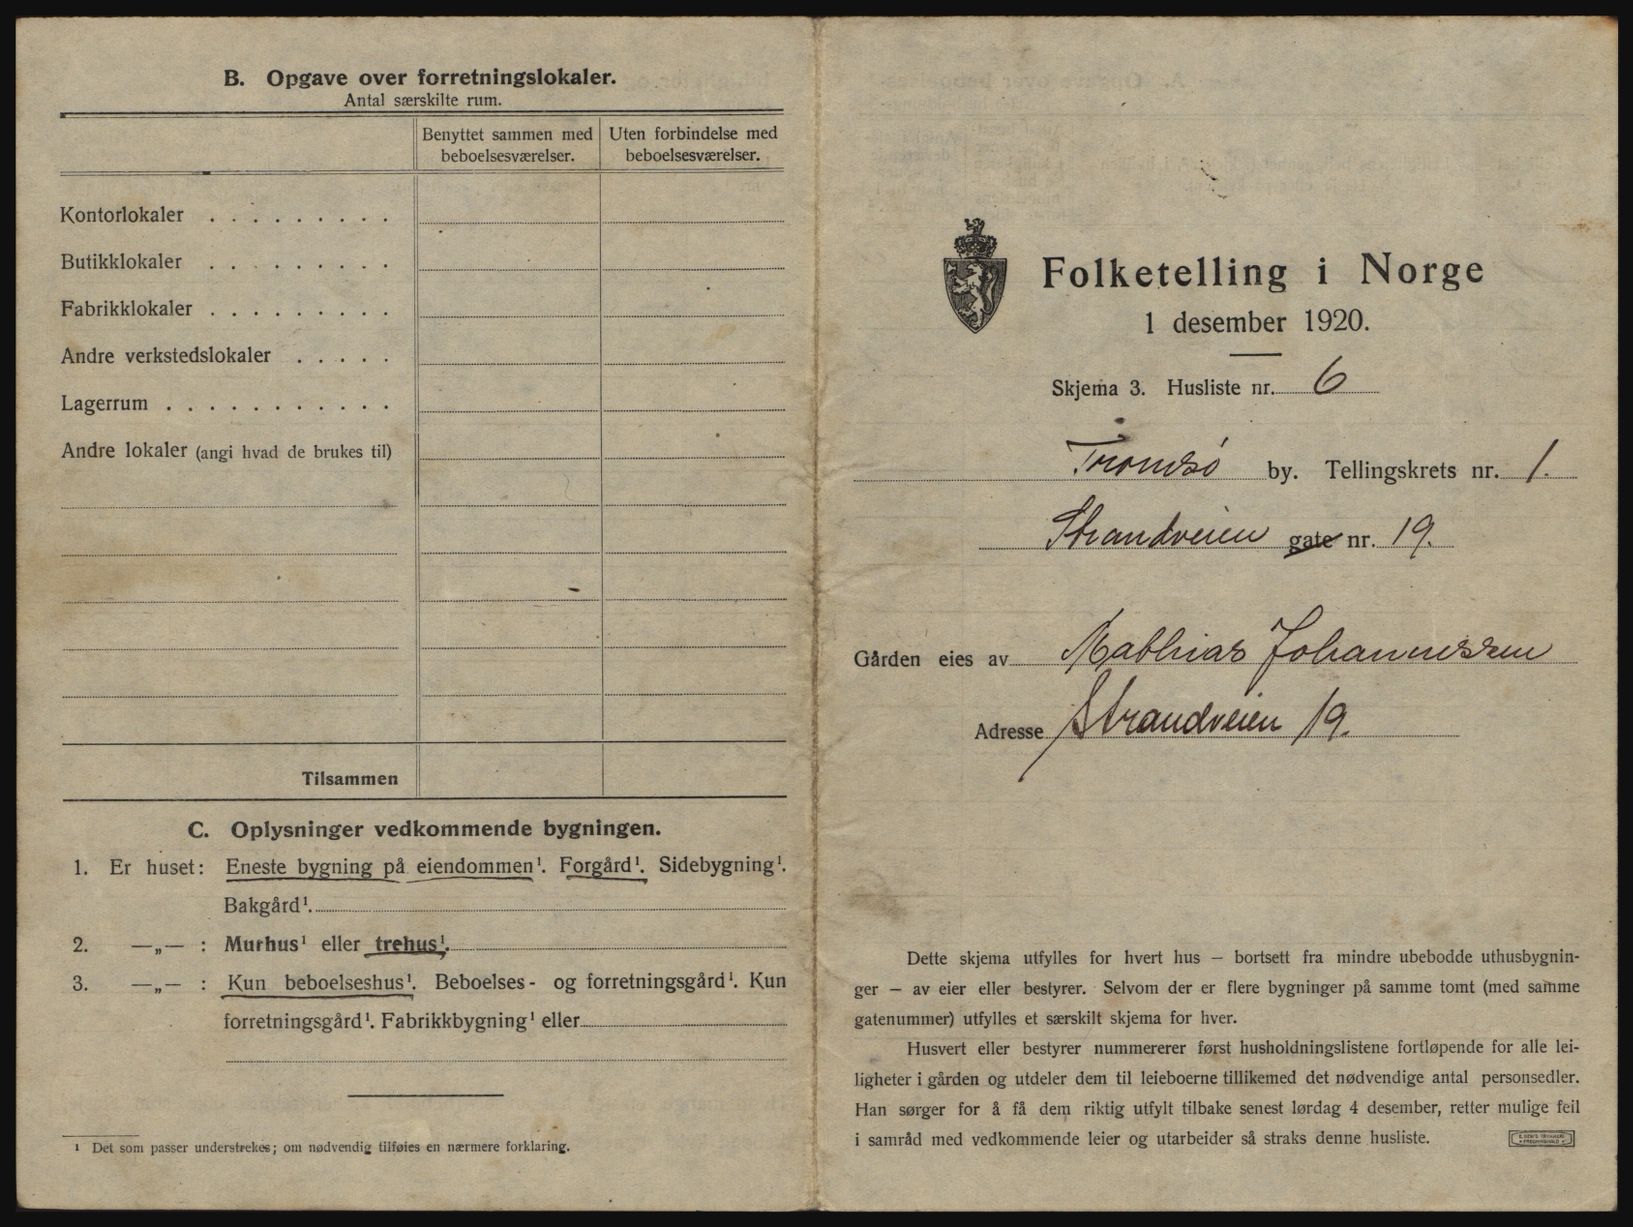 B. Opgave over forretningslokaler.
Antal særskilte rum.
Benyttet sammen med beboelsesværelser.
Uten forbindelse med beboelsesværelser.
Kontorlokaler . . . . . . . . .
Butikklokaler . . . . . . . . .
Fabrikklokaler . . . . . . . . .
Andre verkstedslokaler . . . . .
Lagerrum . . . . . . . . . . .
Andre lokaler (angi hvad de brukes til)
Tilsammen
C. Oplysninger vedkommende bygningen.
1. Er huset: Eneste bygning på eiendommen¹. Forgård¹. Sidebygning¹.
Bakgård¹.
2. —„— : Murhus¹ eller trehus¹.
3. —„— : Kun beboelseshus¹. Beboelses- og forretningsgård¹. Kun
forretningsgård¹. Fabrikkbygning¹ eller
¹ Det som passer understrekes; om nødvendig tilføies en nærmere forklaring.
Folketelling i Norge
1 desember 1920.
Skjema 3. Husliste nr. 6
Tromsø by. Tellingskrets nr. 1.
Strandveien gate nr. 19.
Gården eies av Mathias Johannessen
Adresse Strandveien 19.
Dette skjema utfylles for hvert hus – bortsett fra mindre ubebodde uthusbygnin-
ger – av eier eller bestyrer. Selvom der er flere bygninger på samme tomt (med samme
gatenummer) utfylles et særskilt skjema for hver.
Husvert eller bestyrer nummererer først husholdningslistene fortløpende for alle lei-
ligheter i gården og utdeler dem til leieboerne tillikemed det nødvendige antal personsedler.
Han sørger for å få dem riktig utfylt tilbake senest lørdag 4 desember, retter mulige feil
i samråd med vedkommende leier og utarbeider så straks denne husliste.